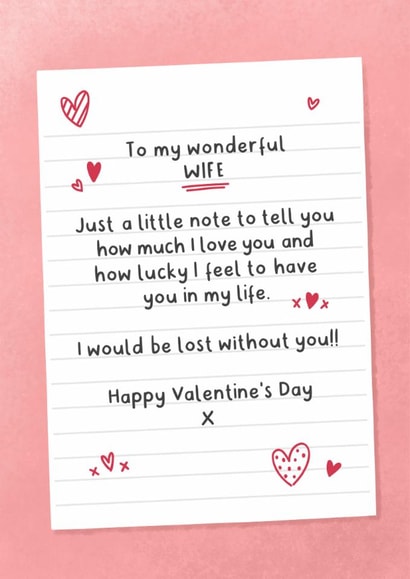 To my wonderful
WIFE
Just a little note to tell you
how much I love you and
how lucky I feel to have
you in my life.
I would be lost without you!!
Happy Valentine's Day
X